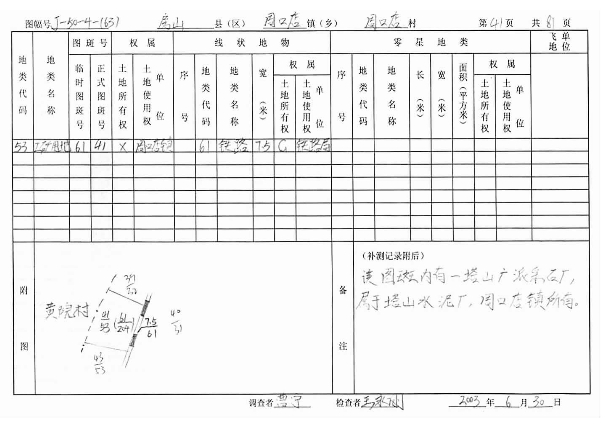 图幅号 J-50-4-(63) 房山 县(区) 周口店 镇(乡) 周口店 村 第 41 页 共 81 页
地类代码 地类名称 图斑号 权属 线状地物 零星地类 飞单地位
临时图斑号 正式图斑号 土地所有权 土地使用权 单位 序号 地类代码 地类名称 宽(米) 权属 土地所有权 土地使用权 单位 序号 地类代码 地类名称 长(米) 宽(米) 面积(平方米) 权属 土地所有权 土地使用权 单位
53 61 41 X 周口店镇 61 铁路 7.5 G 铁路局
附图
黄院村
41/53 7.5/61 40/51
43/53
备注
(补测记录附后)
该图斑内有一塔山广派采石厂,
属于塔山水泥厂,周口店镇所有。
调查者 曹宁 检查者 2003 年 6 月 30 日